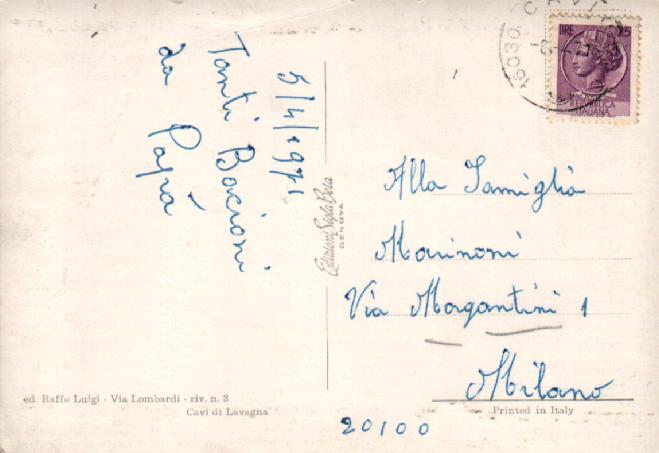 5/4/1971
Tanti Bacioni
da Papà
Edizioni Sigla Beta
GENOVA
ed. Raffo Luigi - Via Lombardi - riv. n. 3
Cavi di Lavagna
16030 CAVI
LIRE 25
REPUBBLICA
ITALIANA
Alla Famiglia
Marinoni
Via Morgantini 1
Milano
Printed in Italy
20100